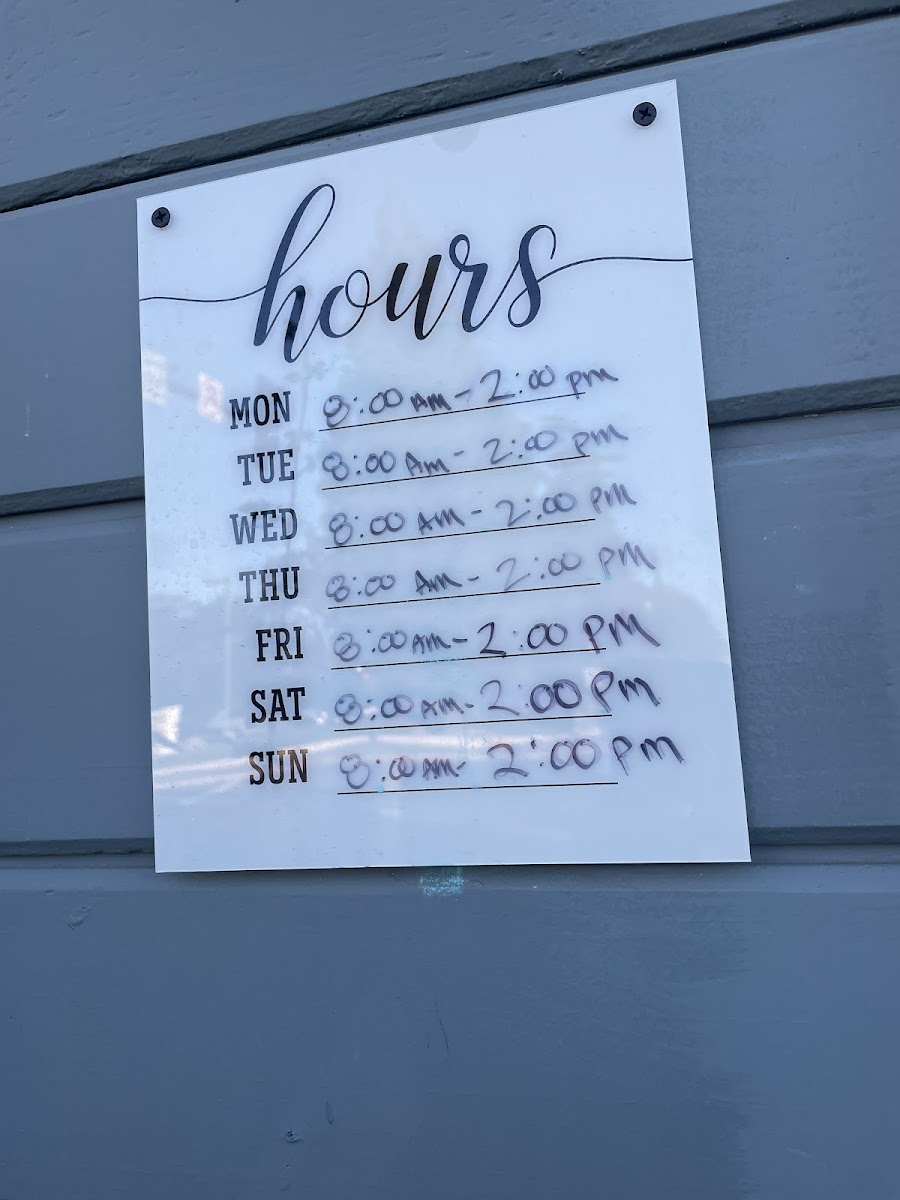 hours
MON 8:00 AM - 2:00 pm
TUE 8:00 Am - 2:00 pm
WED 8:00 AM - 2:00 PM
THU 8:00 Am - 2:00 PM
FRI 8:00 AM - 2:00 PM
SAT 8:00 AM - 2:00 Pm
SUN 8:00 AM - 2:00 pm